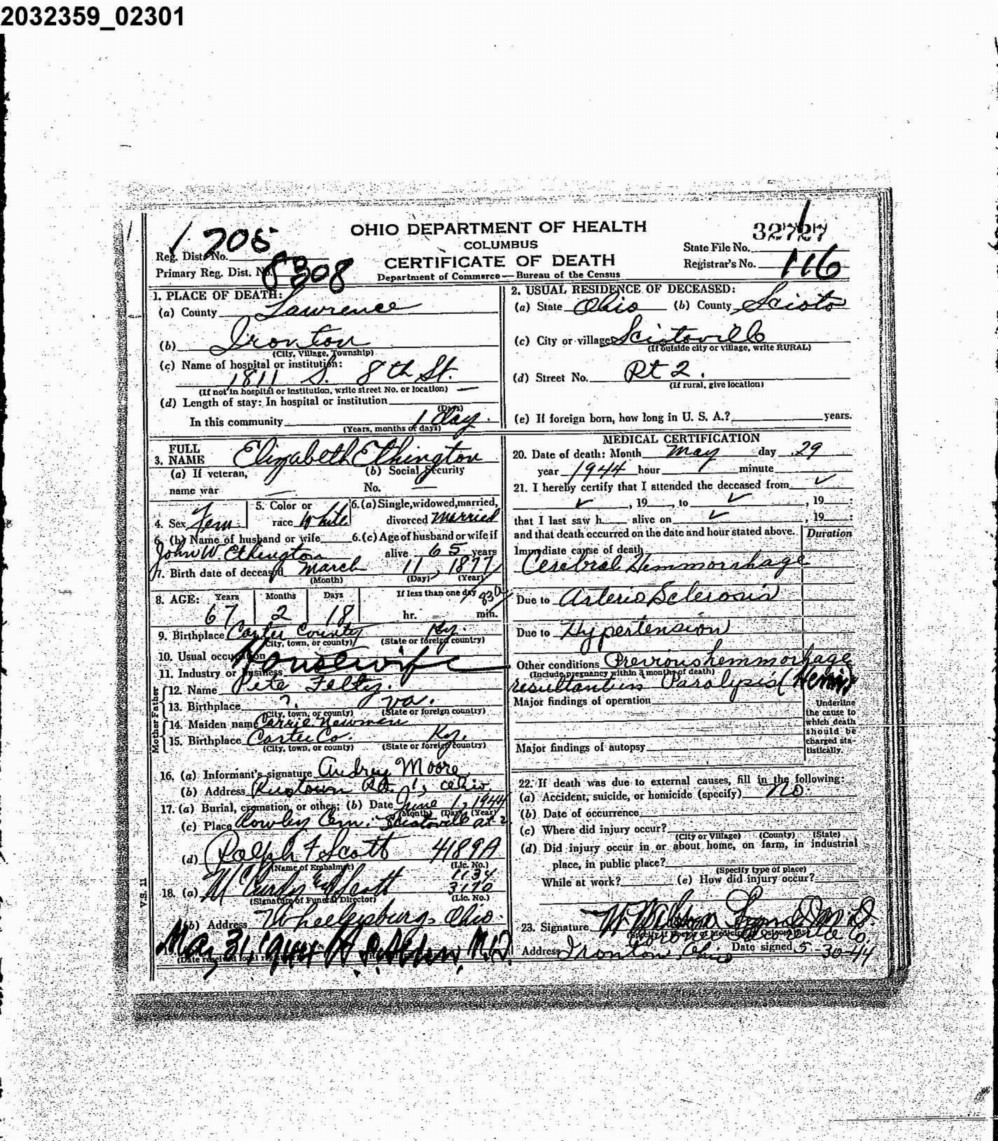 2032359_02301
OHIO DEPARTMENT OF HEALTH
COLUMBUS
CERTIFICATE OF DEATH
Department of Commerce—Bureau of the Census
Reg. Dist. No. 1 205
Primary Reg. Dist. No. 8308
State File No. 32727
Registrar's No. 116
1. PLACE OF DEATH:
(a) County Lawrence
(b) Ironton
(City, Village, Township)
(c) Name of hospital or institution:
1811 S. 8th St.
(If not in hospital or institution, write street No. or location)
(d) Length of stay: In hospital or institution
(Days)
In this community 1 day
(Years, months or days)
2. USUAL RESIDENCE OF DECEASED:
(a) State Ohio (b) County Scioto
(c) City or village Sciotoville
(If outside city or village, write RURAL)
(d) Street No. Rt 2.
(If rural, give location)
(e) If foreign born, how long in U. S. A.? years.
3. FULL NAME Elizabeth Ethington
(a) If veteran, name war —
(b) Social Security No. —
4. Sex Fem
5. Color or race White
6. (a) Single, widowed, married, divorced Married
6. (b) Name of husband or wife John W. Ethington
6. (c) Age of husband or wife if alive 65 years
7. Birth date of deceased March 11, 1877
(Month) (Day) (Year)
8. AGE: Years Months Days If less than one day
67 2 18 hr. min.
9. Birthplace Carter County Ky.
(City, town, or county) (State or foreign country)
10. Usual occupation Housewife
11. Industry or business
Mother Father
12. Name Pete Felty
13. Birthplace ? Va.
(City, town, or county) (State or foreign country)
14. Maiden name Carrie Newman
15. Birthplace Carter Co. Ky.
(City, town, or county) (State or foreign country)
16. (a) Informant's signature Audrey Moore
(b) Address Rt. 1, Ohio
17. (a) Burial, cremation, or other; (b) Date June 1, 1944
(Month) (Day) (Year)
(c) Place Rowley Cem.
(d) Ralph F Scott 4189A
(Name of Embalmer) (Lic. No.)
1134
18. (a) Scott 3170
(Signature of Funeral Director) (Lic. No.)
(b) Address Wheelersburg Ohio.
May 31 1944 M.D.
V.S. 11
MEDICAL CERTIFICATION
20. Date of death: Month May day 29
year 1944 hour minute
21. I hereby certify that I attended the deceased from
, 19 , to , 19 ;
that I last saw h alive on , 19 ;
and that death occurred on the date and hour stated above.
Duration
Immediate cause of death
Cerebral Hemmorrhage
Due to Arterio Sclerosis
Due to Hypertension
Other conditions Previous hemmorhage
(Include pregnancy within 3 months of death)
resultant in Paralysis
Major findings of operation
Underline the cause to which death should be charged statistically.
Major findings of autopsy
22. If death was due to external causes, fill in the following:
(a) Accident, suicide, or homicide (specify) No.
(b) Date of occurrence
(c) Where did injury occur?
(City or Village) (County) (State)
(d) Did injury occur in or about home, on farm, in industrial
place, in public place?
(Specify type of place)
While at work? (e) How did injury occur?
23. Signature
Address Ironton Ohio Date signed 5-30-44